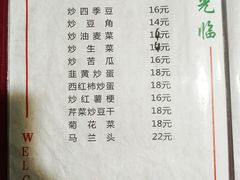 炒四季豆 16元
炒豆角 14元
炒油麦菜 16元
炒生菜 元
炒苦瓜 16元
韭黄炒蛋 18元
西红柿炒蛋 18元
炒红薯梗 16元
芹菜炒豆干 18元
菊花菜 18元
马兰头 22元
光临
WELC